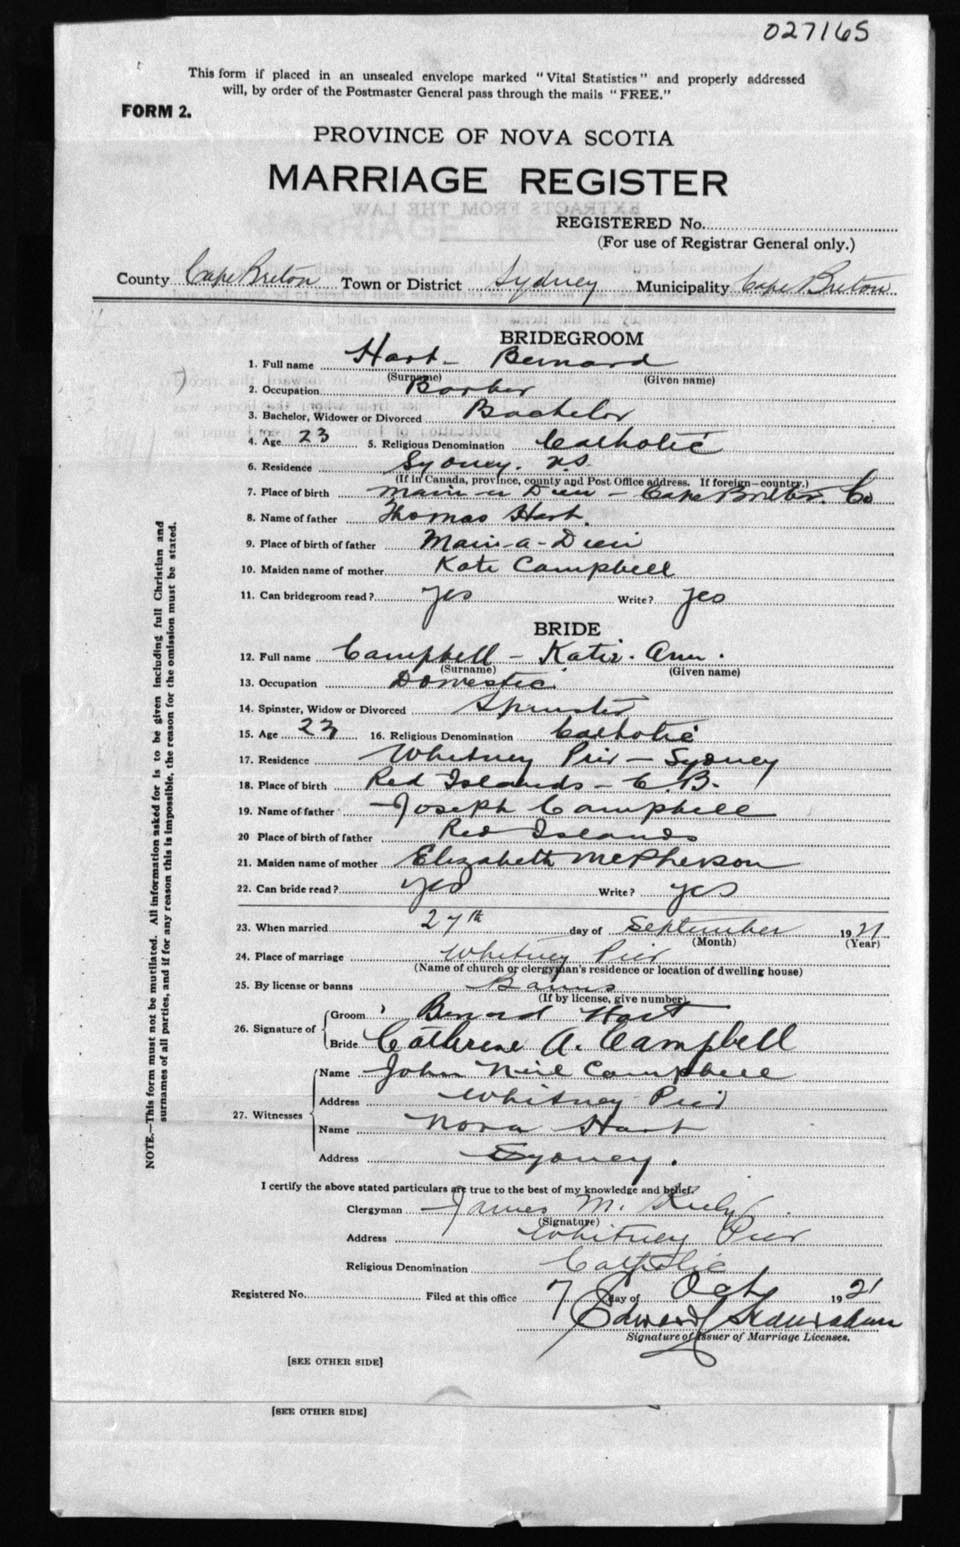 027165
This form if placed in an unsealed envelope marked "Vital Statistics" and properly addressed
will, by order of the Postmaster General pass through the mails "FREE."
FORM 2.
PROVINCE OF NOVA SCOTIA
MARRIAGE REGISTER
REGISTERED No.
(For use of Registrar General only.)
County Cape Breton Town or District Sydney Municipality Cape Breton
BRIDEGROOM
1. Full name Hart - Bernard
(Surname) (Given name)
2. Occupation Barber
3. Bachelor, Widower or Divorced Bachelor
4. Age 23 5. Religious Denomination Catholic
6. Residence Sydney. N.S.
(If in Canada, province, county and Post Office address. If foreign—country.)
7. Place of birth Main-a Dieu - Cape Breton. Co
8. Name of father Thomas Hart.
9. Place of birth of father Main-a-Dieu
10. Maiden name of mother Kate Campbell
11. Can bridegroom read? yes Write? yes
BRIDE
12. Full name Campbell - Katie Ann.
(Surname) (Given name)
13. Occupation Domestic
14. Spinster, Widow or Divorced Spinster
15. Age 23 16. Religious Denomination Catholic
17. Residence Whitney Pier - Sydney
18. Place of birth Red Islands - C.B.
19. Name of father Joseph Campbell
20 Place of birth of father Red Islands
21. Maiden name of mother Elizabeth McPherson
22. Can bride read? yes Write? yes
23. When married 27th day of September 1921
(Month) (Year)
24. Place of marriage Whitney Pier
(Name of church or clergyman's residence or location of dwelling house)
25. By license or banns Banns
(If by license, give number)
26. Signature of Groom Bernard Hart
Bride Catherine A. Campbell
Name John Neil Campbell
Address Whitney Pier
27. Witnesses
Name Nora Hart
Address Sydney.
I certify the above stated particulars are true to the best of my knowledge and belief.
Clergyman James M. Kiely
(Signature)
Address Whitney Pier
Religious Denomination Catholic
Registered No. Filed at this office 7 day of Oct 1921
Edward
Signature of Issuer of Marriage Licenses.
[SEE OTHER SIDE]
[SEE OTHER SIDE]
NOTE.—This form must not be mutilated. All information asked for is to be given including full Christian and
surnames of all parties, and if for any reason this is impossible, the reason for the omission must be stated.